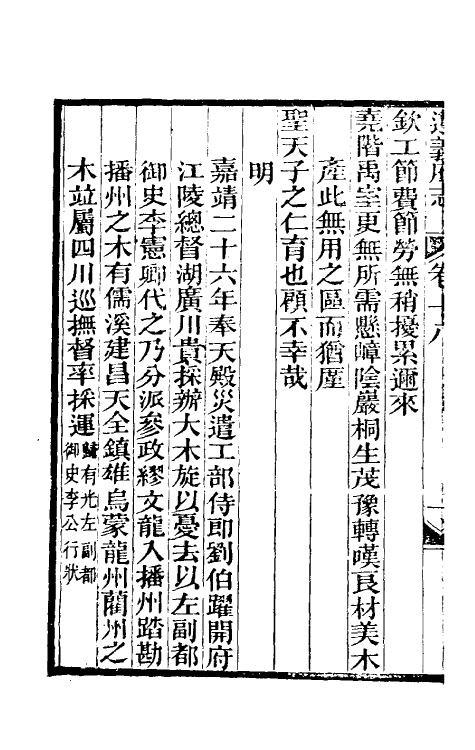 遵義府志 卷十八
欽工節費節勞無稍擾累邇來
堯階禹室更無所需懸嶂陰巖桐生茂豫轉嘆良材美木
產此無用之區而猶厪
聖天子之仁育也顧不幸哉
明
嘉靖二十六年奉天殿災遣工部侍郎劉伯躍開府
江陵總督湖廣川貴採辦大木旋以憂去以左副都
御史李憲卿代之乃分派參政繆文龍入播州踏勘
播州之木有儒溪建昌天全鎮雄烏蒙龍州藺州之
木竝屬四川巡撫督率採運歸有光左副都
御史李公行狀